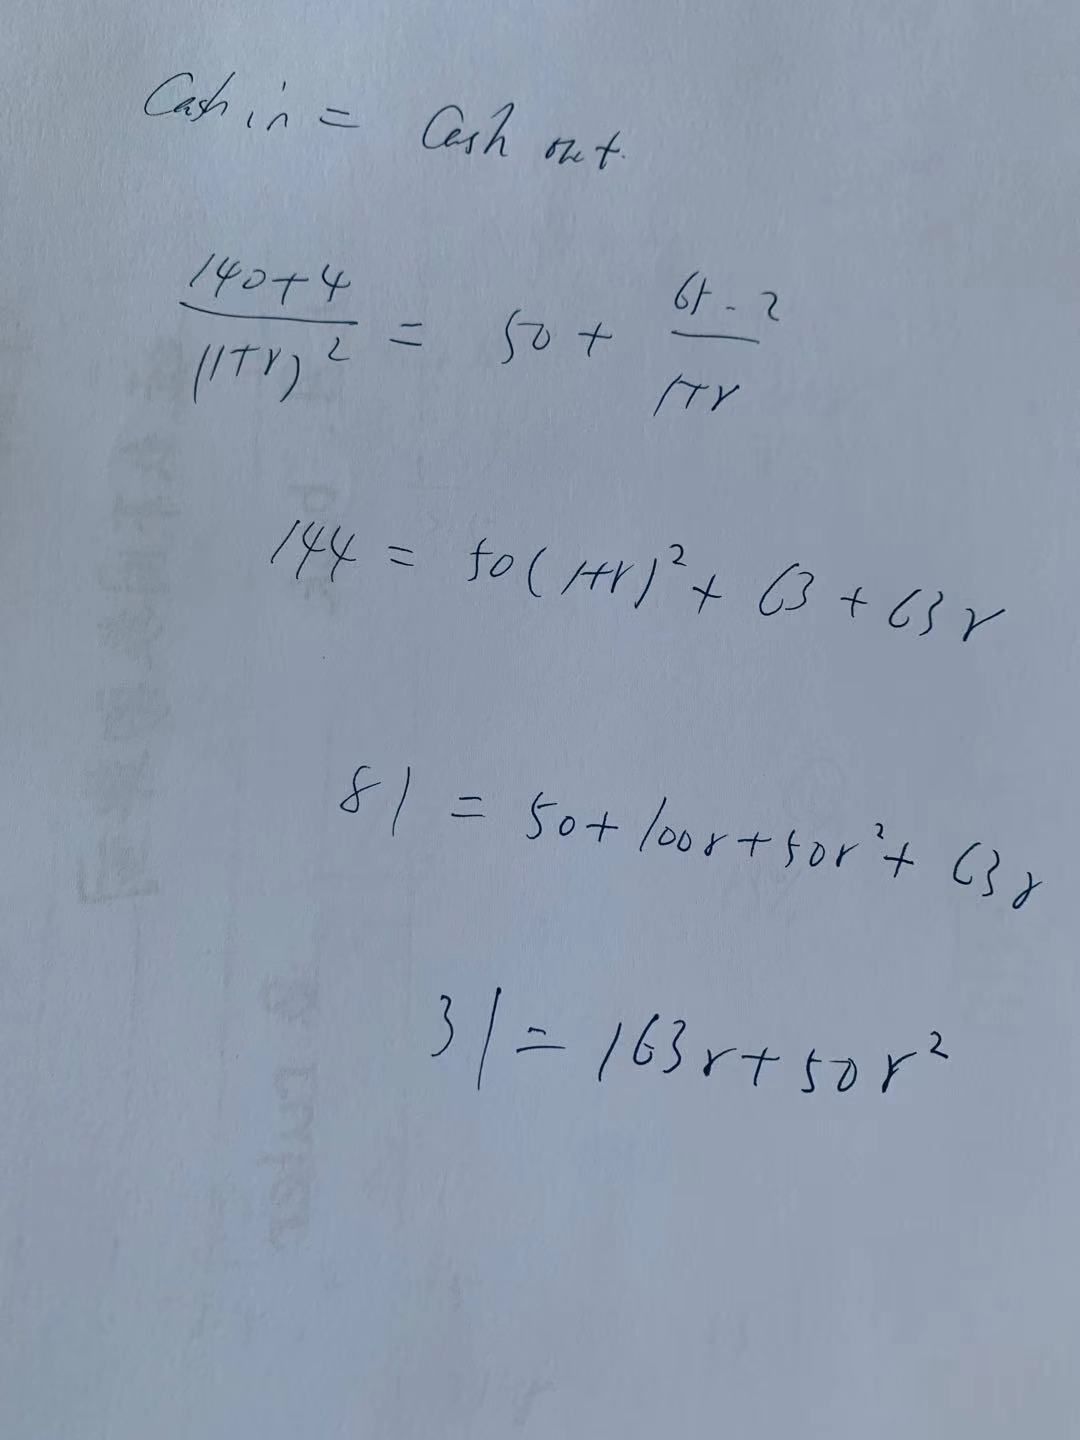 Cash in = Cash out.
(140+4)/(1+r)² = 50 + (65-2)/(1+r)
144 = 50(1+r)² + 63 + 63r
81 = 50+100r+50r²+63r
31=163r+50r²